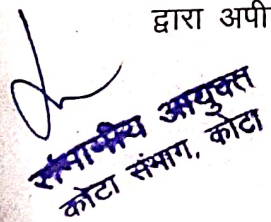 द्वारा अपी
संभागीय आयुक्त
कोटा संभाग, कोटा